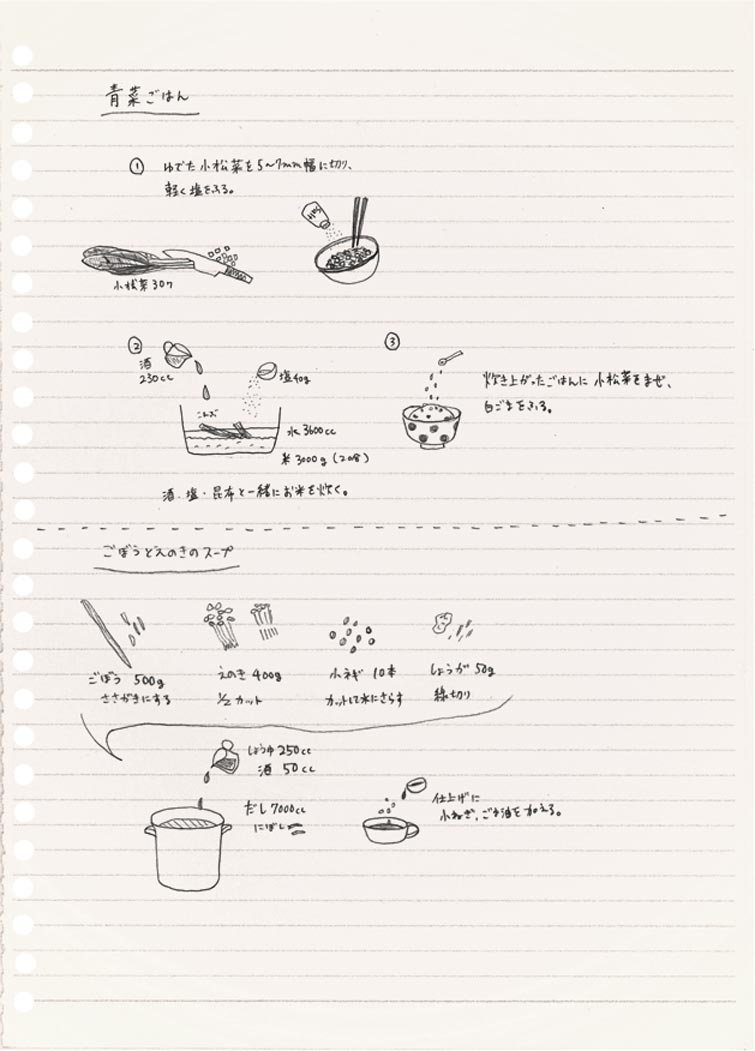 青菜ごはん
① ゆでた小松菜を5〜7mm幅に切り、
軽く塩をふる。
Salt
小松菜30ワ
②
酒
230cc
塩40g
こんぶ
水3600cc
米3000g（20合）
酒・塩・昆布と一緒にお米を炊く。
③
炊き上がったごはんに小松菜をまぜ、
白ごまをふる。
ごぼうとえのきのスープ
ごぼう 500g
ささがきにする
えのき 400g
1/2カット
小ネギ 10本
カットして水にさらす
しょうが 50g
線切り
しょうゆ250cc
酒 50cc
だし7000cc
にぼし
仕上げに
小ねぎ、ごま油を加える。